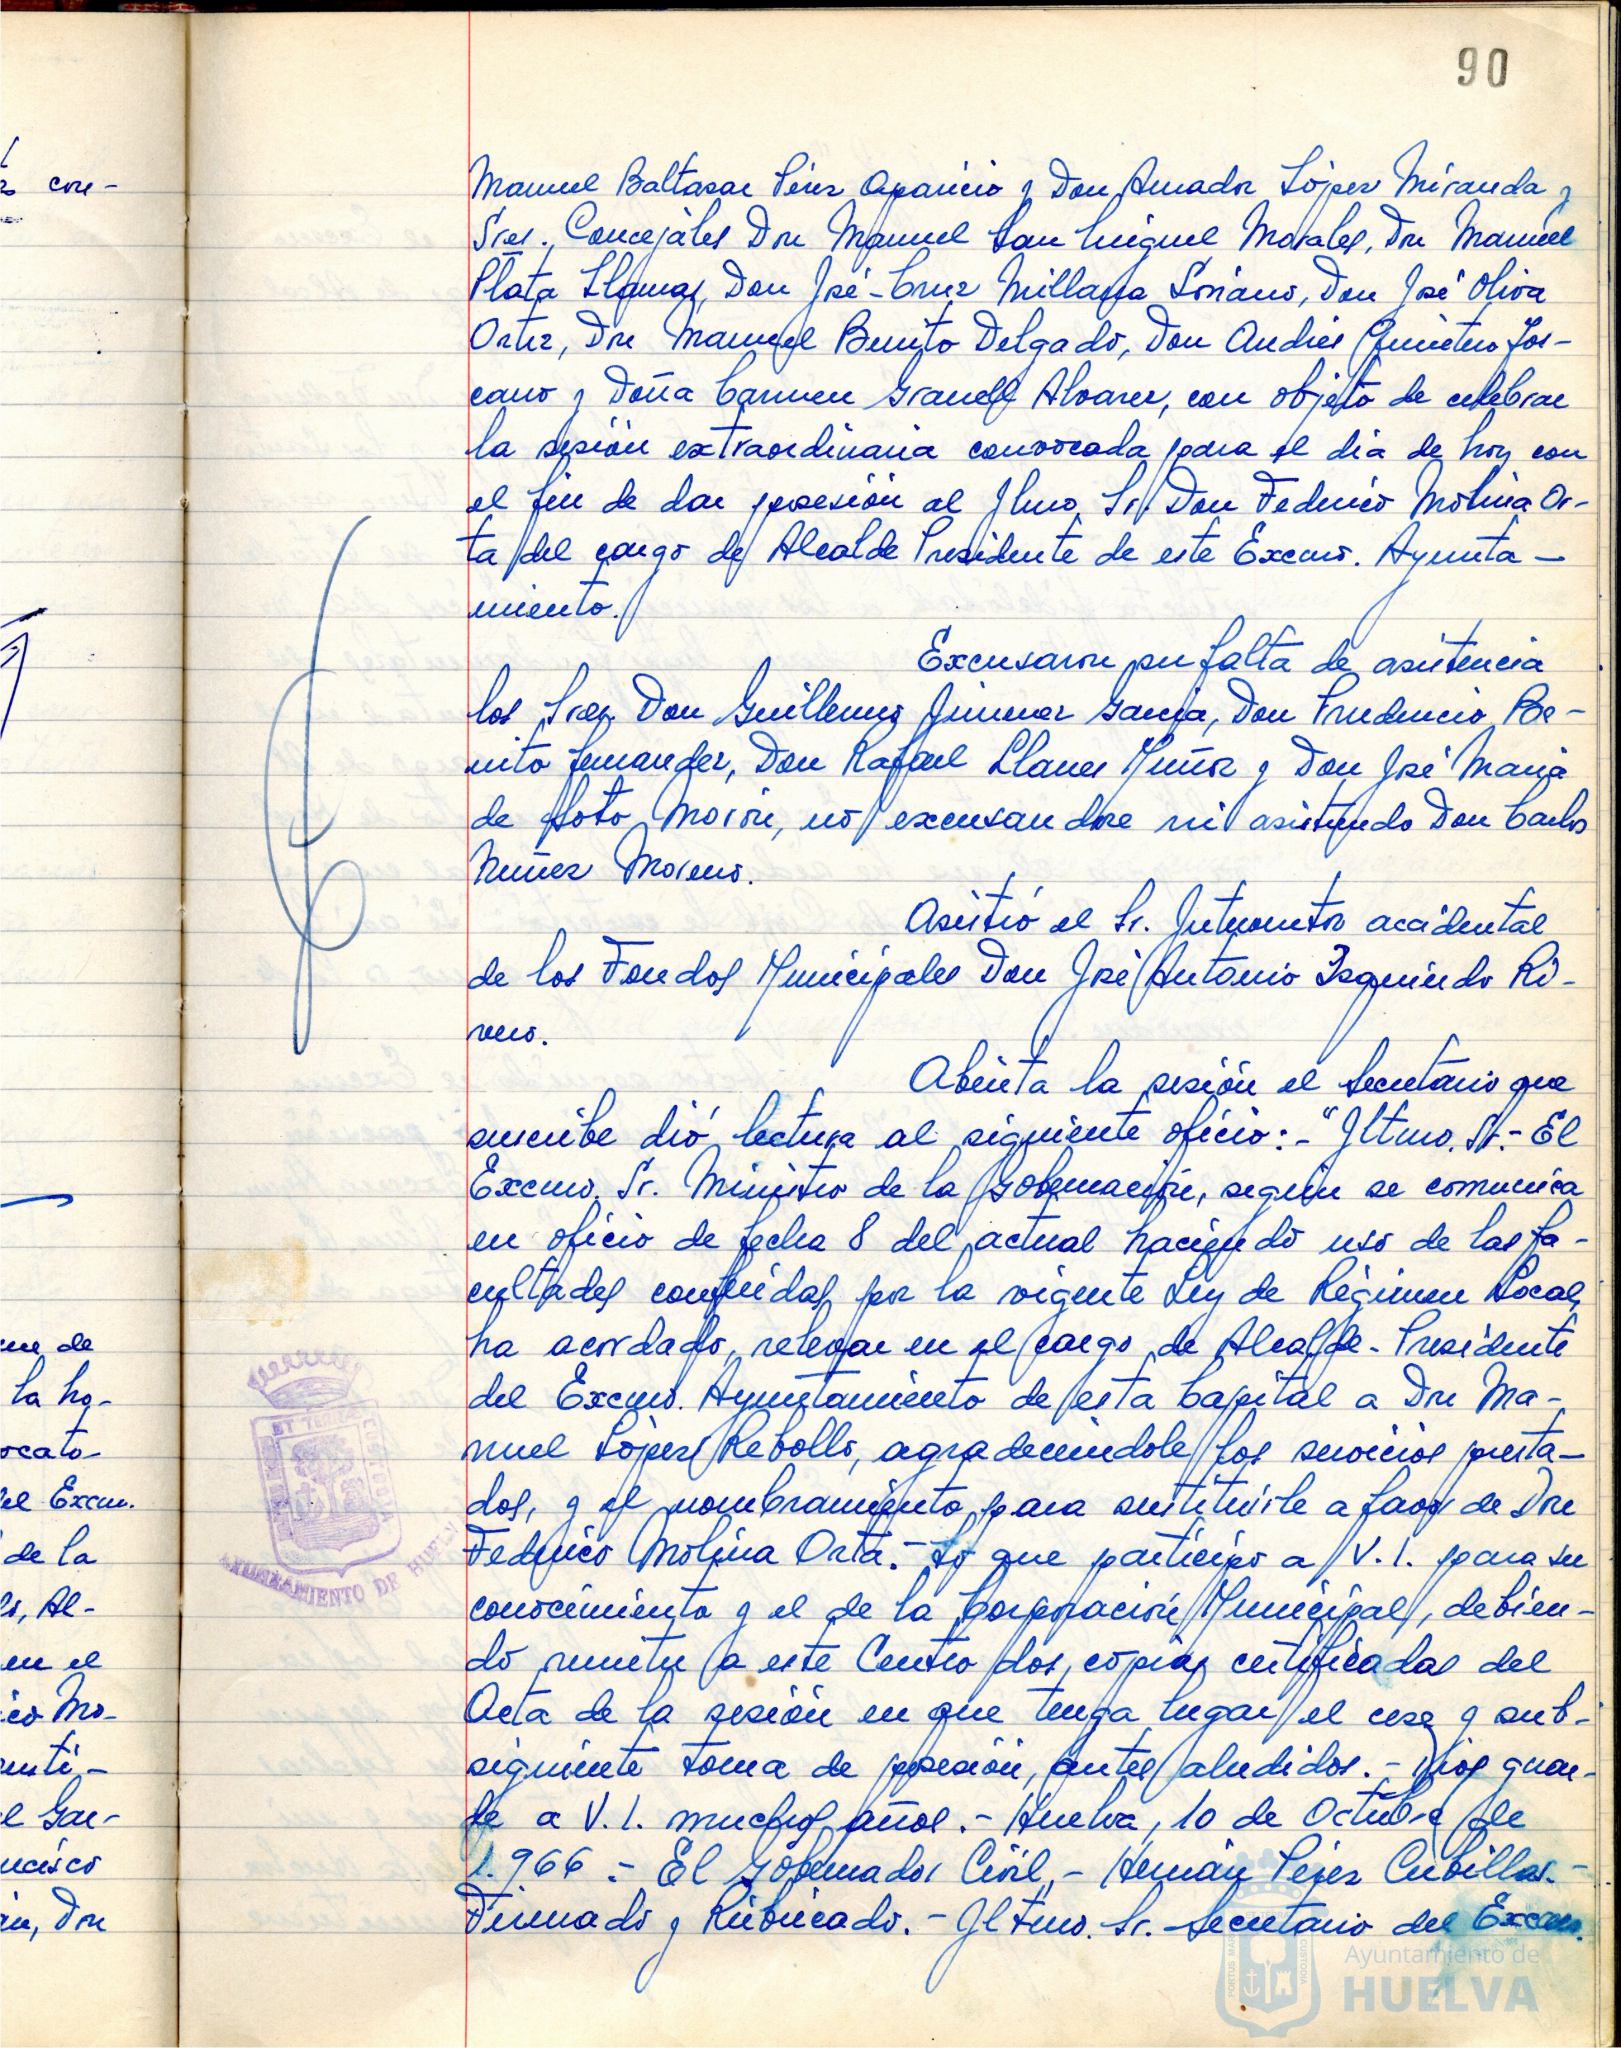 90
Manuel Baltasar Pérez Aparicio y Don Amador López Miranda y
Sres. Concejáles Don Manuel San Miguel Morales, Don Manuel
Plata Llamas, Don José-Cruz Millana Soriano, Don José Oliva
Ortiz, Don Manuel Benito Delgado, Don Andrés Quintero Tos-
cano y Doña Carmen Grandl Alvarez, con objeto de celebrar
la sesión extraordinaria convocada para el dia de hoy con
el fin de dar posesión al Ilmo. Sr. Don Federico Molina Or-
ta del cargo de Alcalde Presidente de este Excmo. Ayunta-
miento.
Excusaron su falta de asistencia
los Sres. Don Guillermo Jimenez Garcia, Don Prudencio Be-
nito Fernandez, Don Rafael Llanes Muñoz y Don José Maria
de Soto Morón, no excusandose ni asistiendo Don Carlos
Nuñez Moreno.
Asistió el Sr. Interventor accidental
de los Fondos Municipales Don José Antonio Izquierdo Ri-
vero.
Abierta la sesión el Secretario que
suscribe dió lectura al siguiente oficio:-"Iltmo. Sr.- El
Excmo. Sr. Ministro de la Gobernación, según se comunica
en oficio de fecha 8 del actual haciendo uso de las fa-
cultades conferidas por la vigente Ley de Régimen Local,
ha acordado, relevar en el cargo de Alcalde-Presidente
del Excmo. Ayuntamiento de esta Capital a Don Ma-
nuel López Rebollo, agradeciendole los servicios presta-
dos, y el nombramiento para sustituirle a favor de Don
Federico Molina Orta.- Lo que participo a V.I. para su
conocimiento y el de la Corporación Municipal, debien-
do remitir a este Centro dos copias certificadas del
Acta de la sesión en que tenga lugar el cese y sub-
siguiente toma de posesión, antes aludidos.- Dios guar-
de a V.I. muchos años.- Huelva, 10 de Octubre de
1.966.- El Gobernador Civil,- Hernán Pérez Cubillas.-
Firmado y Rubricado.- Iltmo. Sr. Secretario del Excmo.
con-
de
la ho-
ocato-
el Excm.
de la
Al-
en el
ico Mo-
l Gar-
ncisco
Don
AYUNTAMIENTO DE HUELVA
PORTUS MARIS
CUSTODIA
Ayuntamiento de
HUELVA